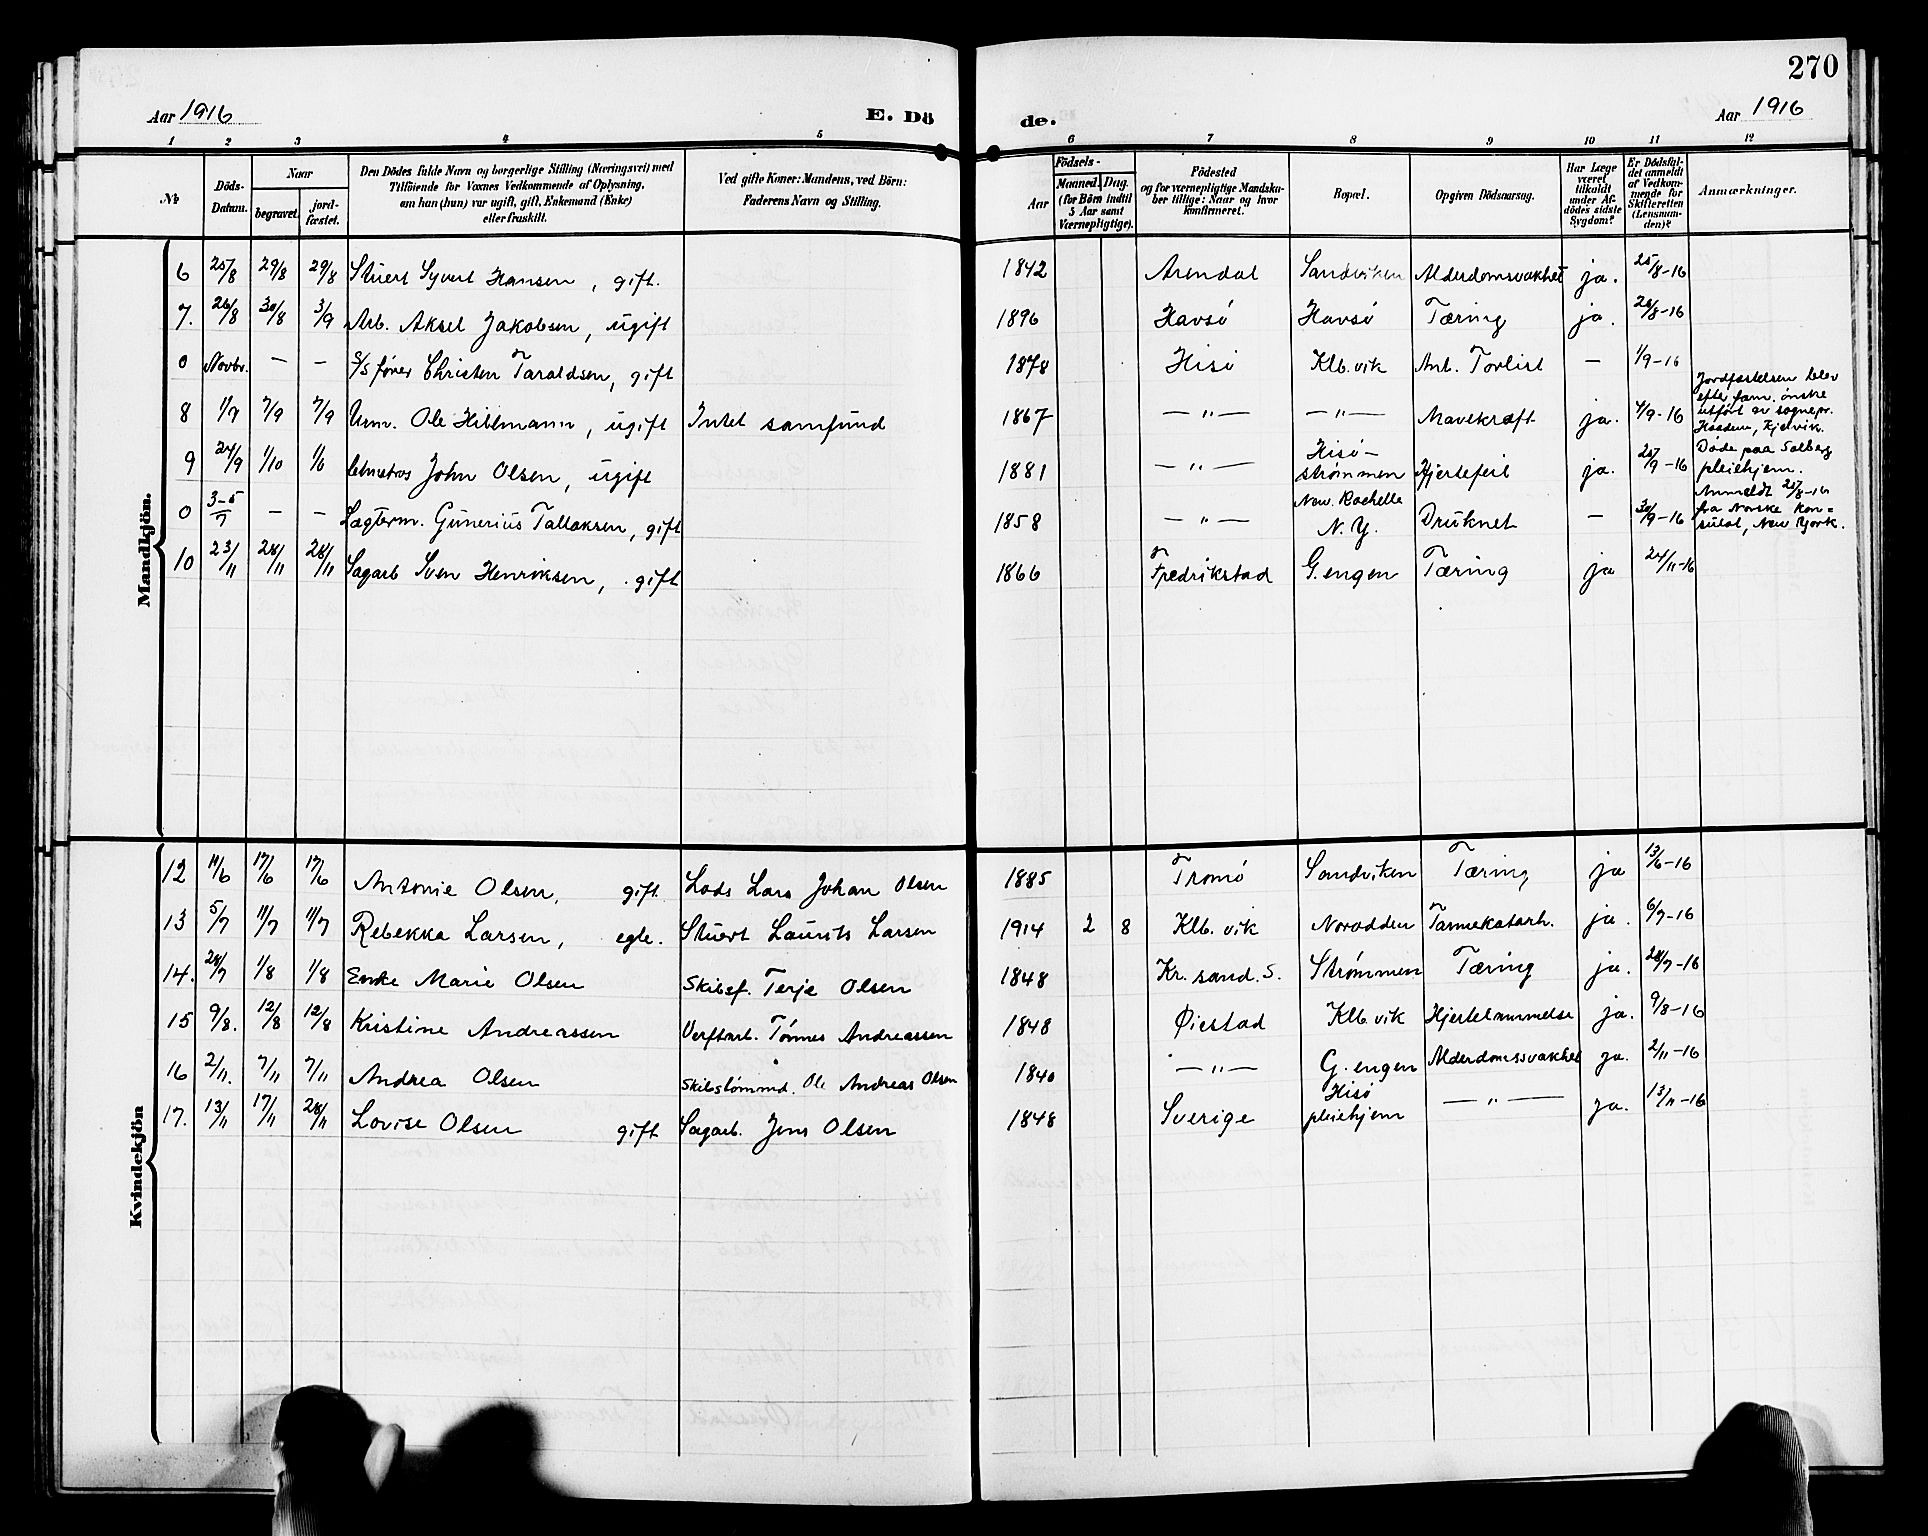 270
Aar 1916 E. Dö de. Aar 1916
1 2 3 4 5 6 7 8 9 10 11 12
№ Döds-Datum. Naar begravet. jord-fæstet. Den Dödes fulde Navn og borgerlige Stilling (Næringsvei) med Tilföiende for Voxnes Vedkommende af Oplysning, om han (hun) var ugift, gift, Enkemand (Enke) eller fraskilt. Ved gifte Koner: Mandens, ved Börn: Faderens Navn og Stilling. Födsels- Aar Maaned. Dag. (for Börn indtil 5 Aar samt Værnepligtige). Födested og for værnepligtige Mandska-ber tillige: Naar og hvor konfirmeret. Bopæl. Opgiven Dödsaarsag. Har Læge været tilkaldt under Af-dödes sidste Sygdom? Er Dödsfal-det anmeldt af Vedkom-mende for Skifteretten (Lensman-den)? Anmærkninger.
Mandkjön.
6 25/8 29/8 29/8 Stuert Syvert Hansen, gift. 1842 Arendal Sandviken Alderdomsvakhet ja. 25/8-16
7. 26/8 30/8 3/9 Arb. Aksel Jakobsen, ugift 1896 Havsö Havsö Tæring ja. 28/8-16
0 Novbr. — — S/S fører Christen Taraldsen, gift 1878 Hisö Klb.vik Ant. Forlist — 1/9-16
8 1/9 7/9 7/9 Ole Hillmann, ugift Intet samfund 1867 —„— —„— Mavekræft ja. 4/9-16 Jordfæstelsen blev efter fam. ønske utført av sognepr. Kjervik.
9 24/9 1/10 1/10 John Olsen, ugift 1881 —„— Hisö-strømmen Hjertefeil ja. 25/9-16 Døde paa Solberg pleiehjem.
0 3-5/7 — — Lægterm. Gunerius Tallaksen, gift 1858 —„— New. Rochelle N.Y. Druknet — 30/9-16 Anmeldt 25/8-16 fra Norske Kon=sulat, New York.
10 23/11 28/11 28/11 Sagarb Sven Henriksen, gift 1866 Fredrikstad G.engen Tæring ja 24/11-16
Kvindekjön
12 11/6 17/6 17/6 Antonie Olsen, gift Lods Lars Johan Olsen 1885 Tromö Sandviken Tæring ja 13/6-16
13 5/7 11/7 11/7 Rebekka Larsen, egte. Stuert Laurits Larsen 1914 2 8 Klb.vik Norodden Tarmekatarh. ja. 6/7-16
14. 28/7 1/8 1/8 Enke Marie Olsen Skibsf. Terje Olsen 1848 Kr.sand.S. Strømmen Tæring ja. 28/7-16
15 9/8. 12/8 12/8 Kristine Andreassen Verftarb. Tönnes Andreassen 1848 Øiestad Klb.vik Hjertelammelse ja. 9/8-16
16 2/11. 7/11 7/11 Andrea Olsen Skibstømmd. Ole Andreas Olsen 1840 —„— G.engen Alderdomssvakhet ja. 2/11-16
17. 13/11 17/11 28/11 Lovise Olsen gift Sagarb. Jens Olsen 1848 Sverige Hisö pleiehjem —„— ja. 13/11-16